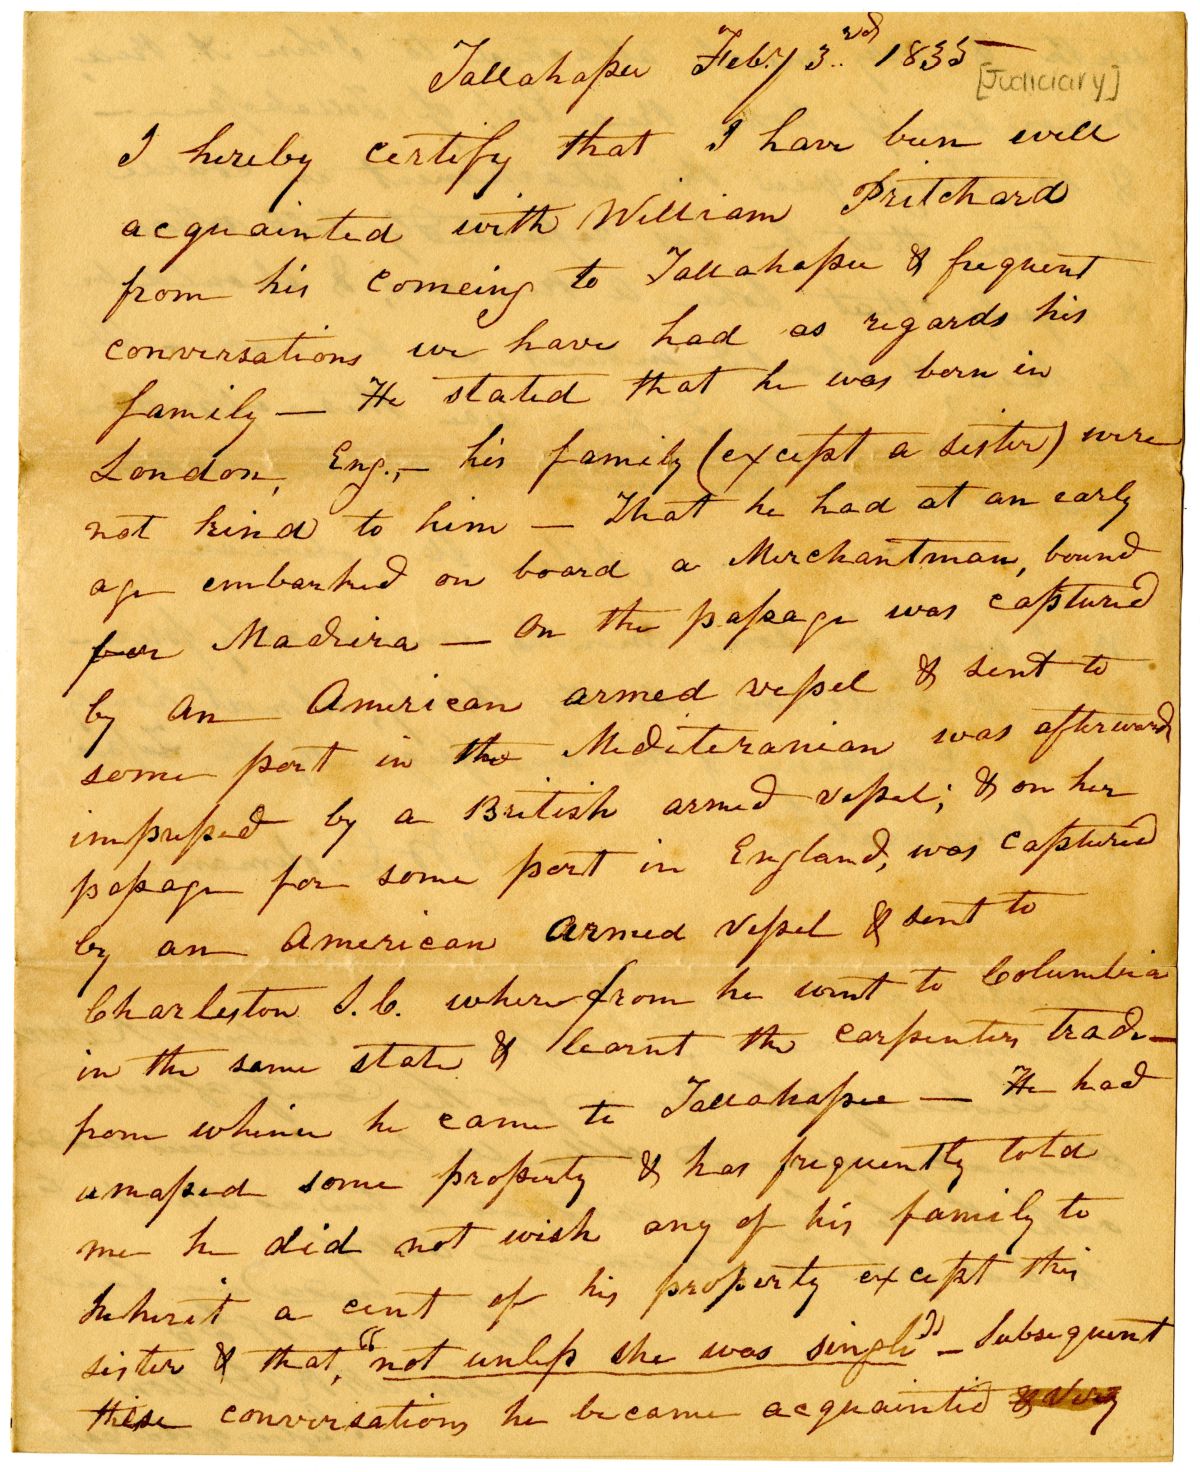 Tallahassee Feby 3rd 1835
[Judiciary]
I hereby certify that I have been well
acquainted with William Pritchard
from his comeing to Tallahassee & frequent
conversations we have had as regards his
family — He stated that he was born in
London, Eng., — his family (except a sister) were
not kind to him — That he had at an early
age embarked on board a Merchantman, bound
for Madeira — On the passage was captured
by an American armed vessel & sent to
some port in the Mediteranian was afterwards
impressed by a British armed vessel; & on her
passage for some port in England, was captured
by an American armed vessel & sent to
Charleston S.C. where from he went to Columbia
in the same state & learnt the carpenters trade —
from whince he came to Tallahassee — He had
amassed some property & has frequently told
me he did not wish any of his family to
inherit a cent of his property except this
sister & that, "not unless she was single" — Subsequent
these conversations he became acquainted & very